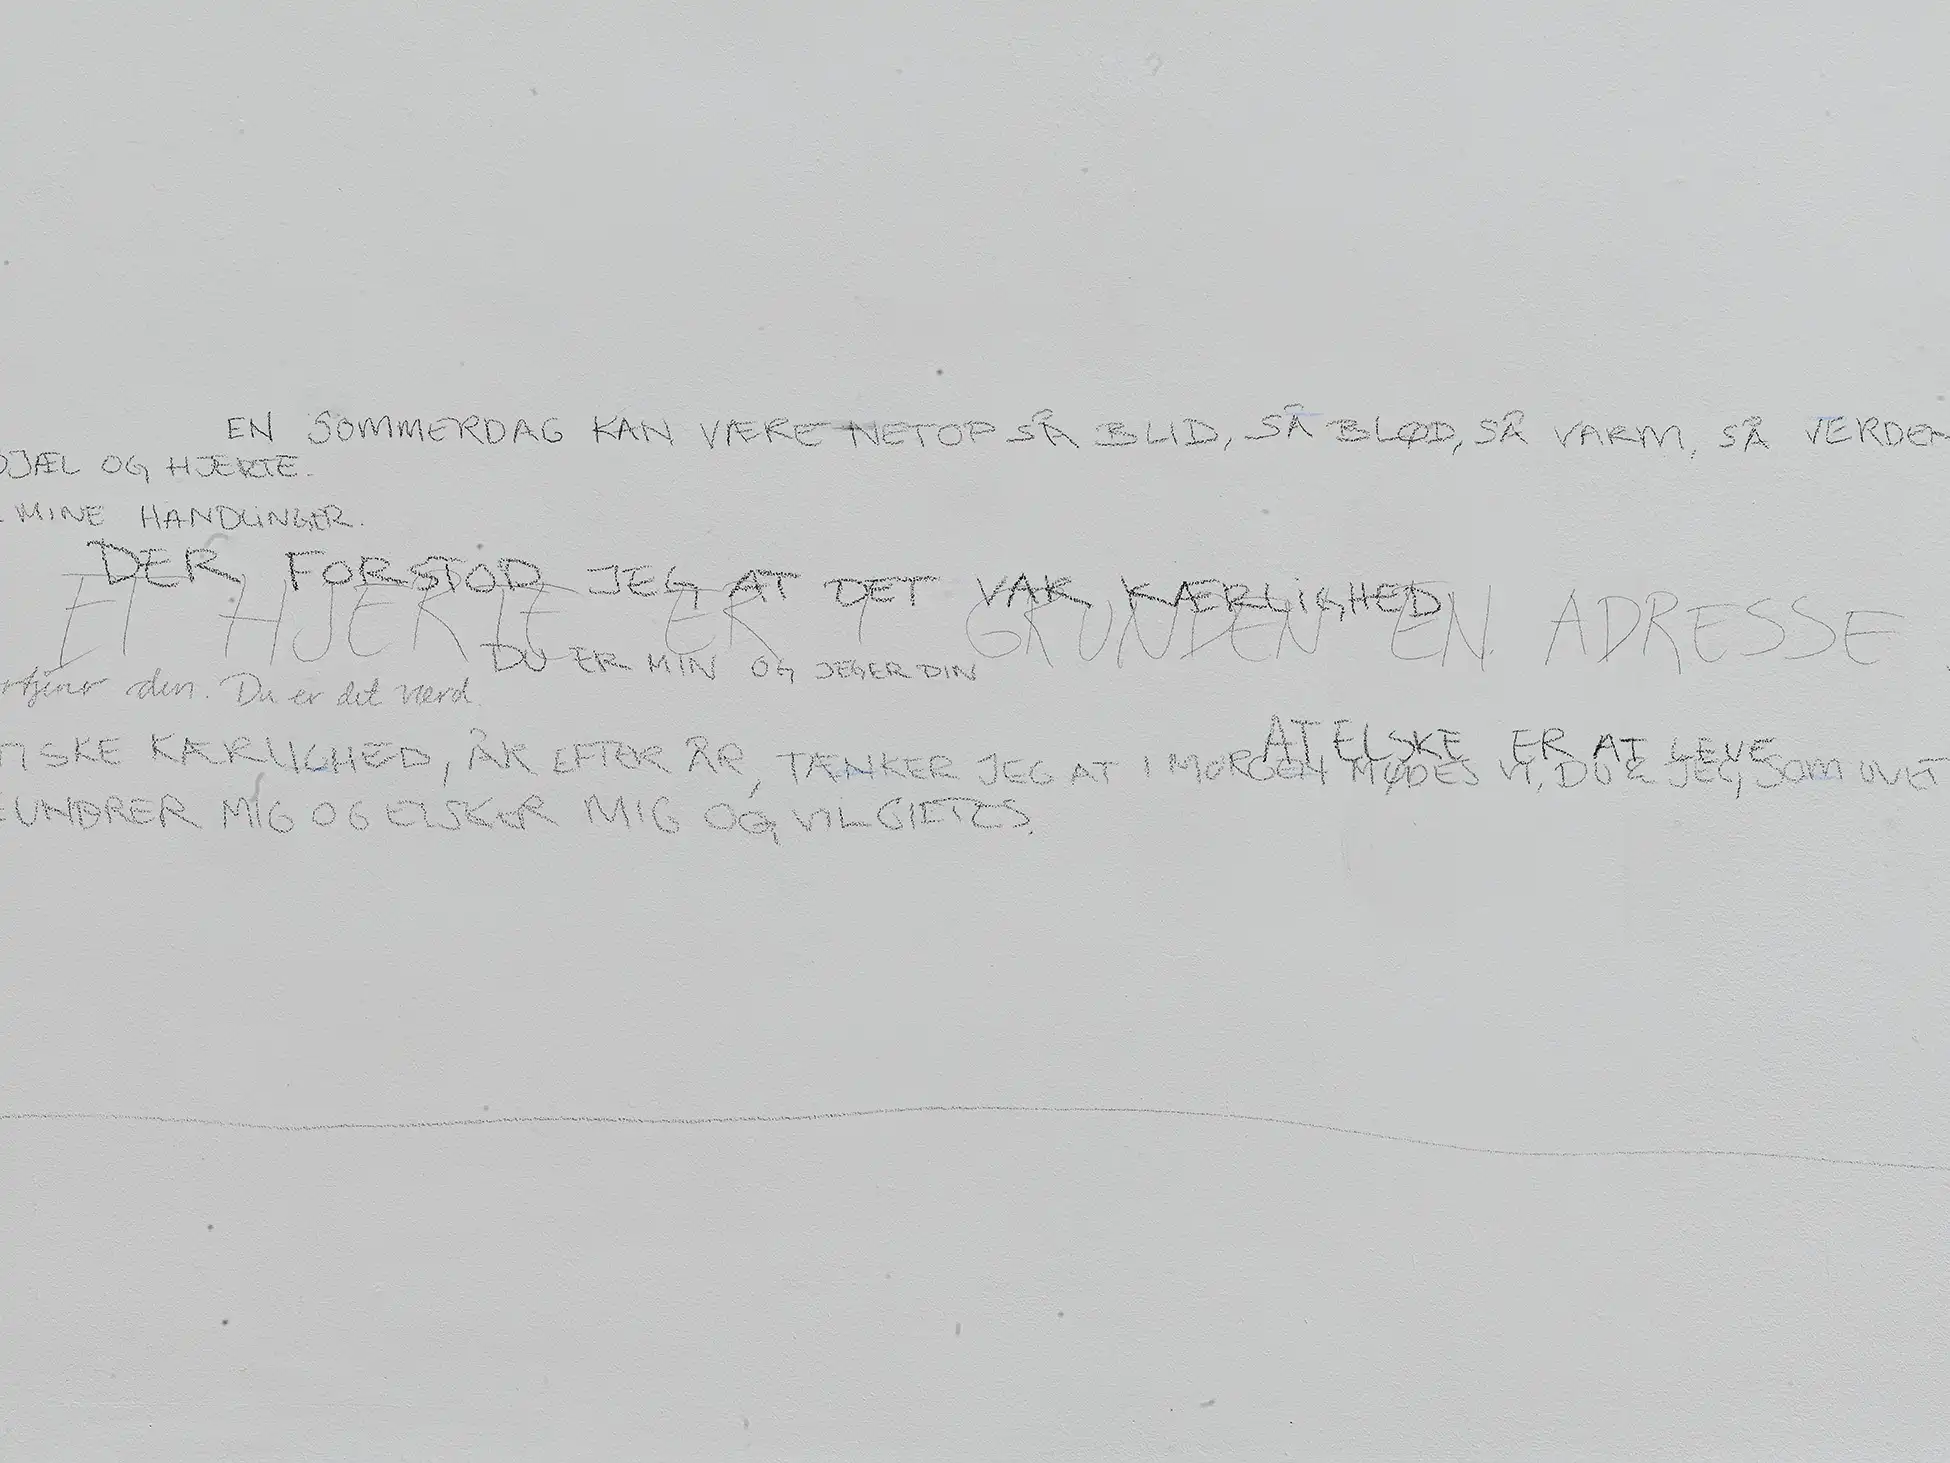 EN SOMMERDAG KAN VÆRE NETOP SÅ BLID, SÅ BLØD, SÅ VARM, SÅ VERDEN
SJÆL OG HJERTE.
MINE HANDLINGER.
DER FORSTOD JEG AT DET VAR KÆRLIGHED
ET HJERTE ER I GRUNDEN EN ADRESSE.
DU ER MIN OG JEG ER DIN
den. Du er det værd.
AT ELSKE ER AT LEVE
KÆRLIGHED, ÅR EFTER ÅR, TÆNKER JEG AT I MORGEN MØDES VI, DU & JEG, SOM UVET
EUNDRER MIG OG ELSKER MIG OG VIL GIFTES.